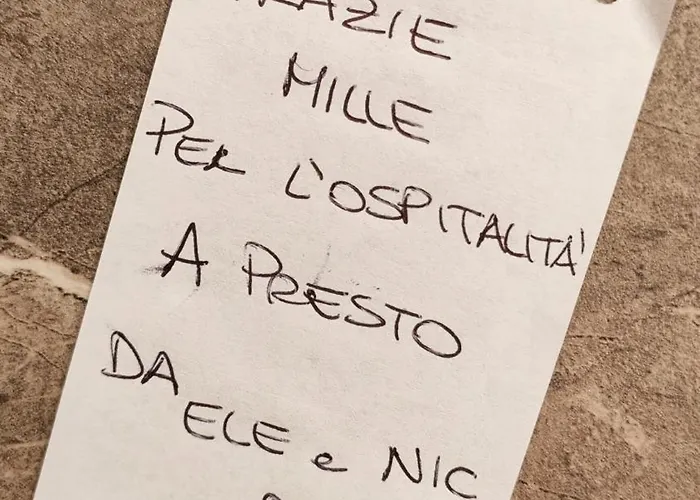 GRAZIE
MILLE
PER L'OSPITALITA'
A PRESTO
DA
ELE e NIC